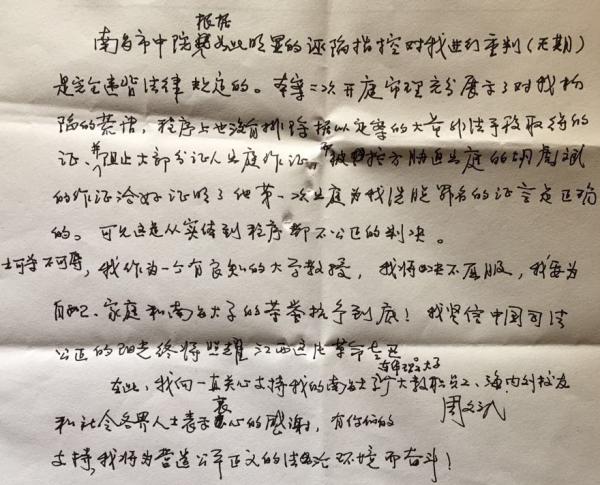 南昌市中院根据如此明显的诬陷指控对我进行重判(无期)
是完全违背法律规定的。本案二次开庭审理充分展示了对我构
陷的荒谬,程序上也没有排除据以定案的大量非法手段取得的
证,并阻止大部分证人出庭作证,而被控方胁迫出庭的胡彪斌
的作证恰好证明了他第一次出庭为我洗脱罪名的证言是正确
的。可见这是从实体到程序都不公正的判决。
士可杀不可辱,我作为一个有良知的大学教授,我将决不屈服,我要为
自己、家庭和南昌大学的荣誉抗争到底!我坚信中国司法
公正的阳光终将照耀江西这片革命
在此,我向一直关心支持我的南昌大学广大教职员工、海内外校友
和社会各界人士表示衷心的感谢,有你们的
周文斌
支持,我将为营造公平正义的法治环境而奋斗!